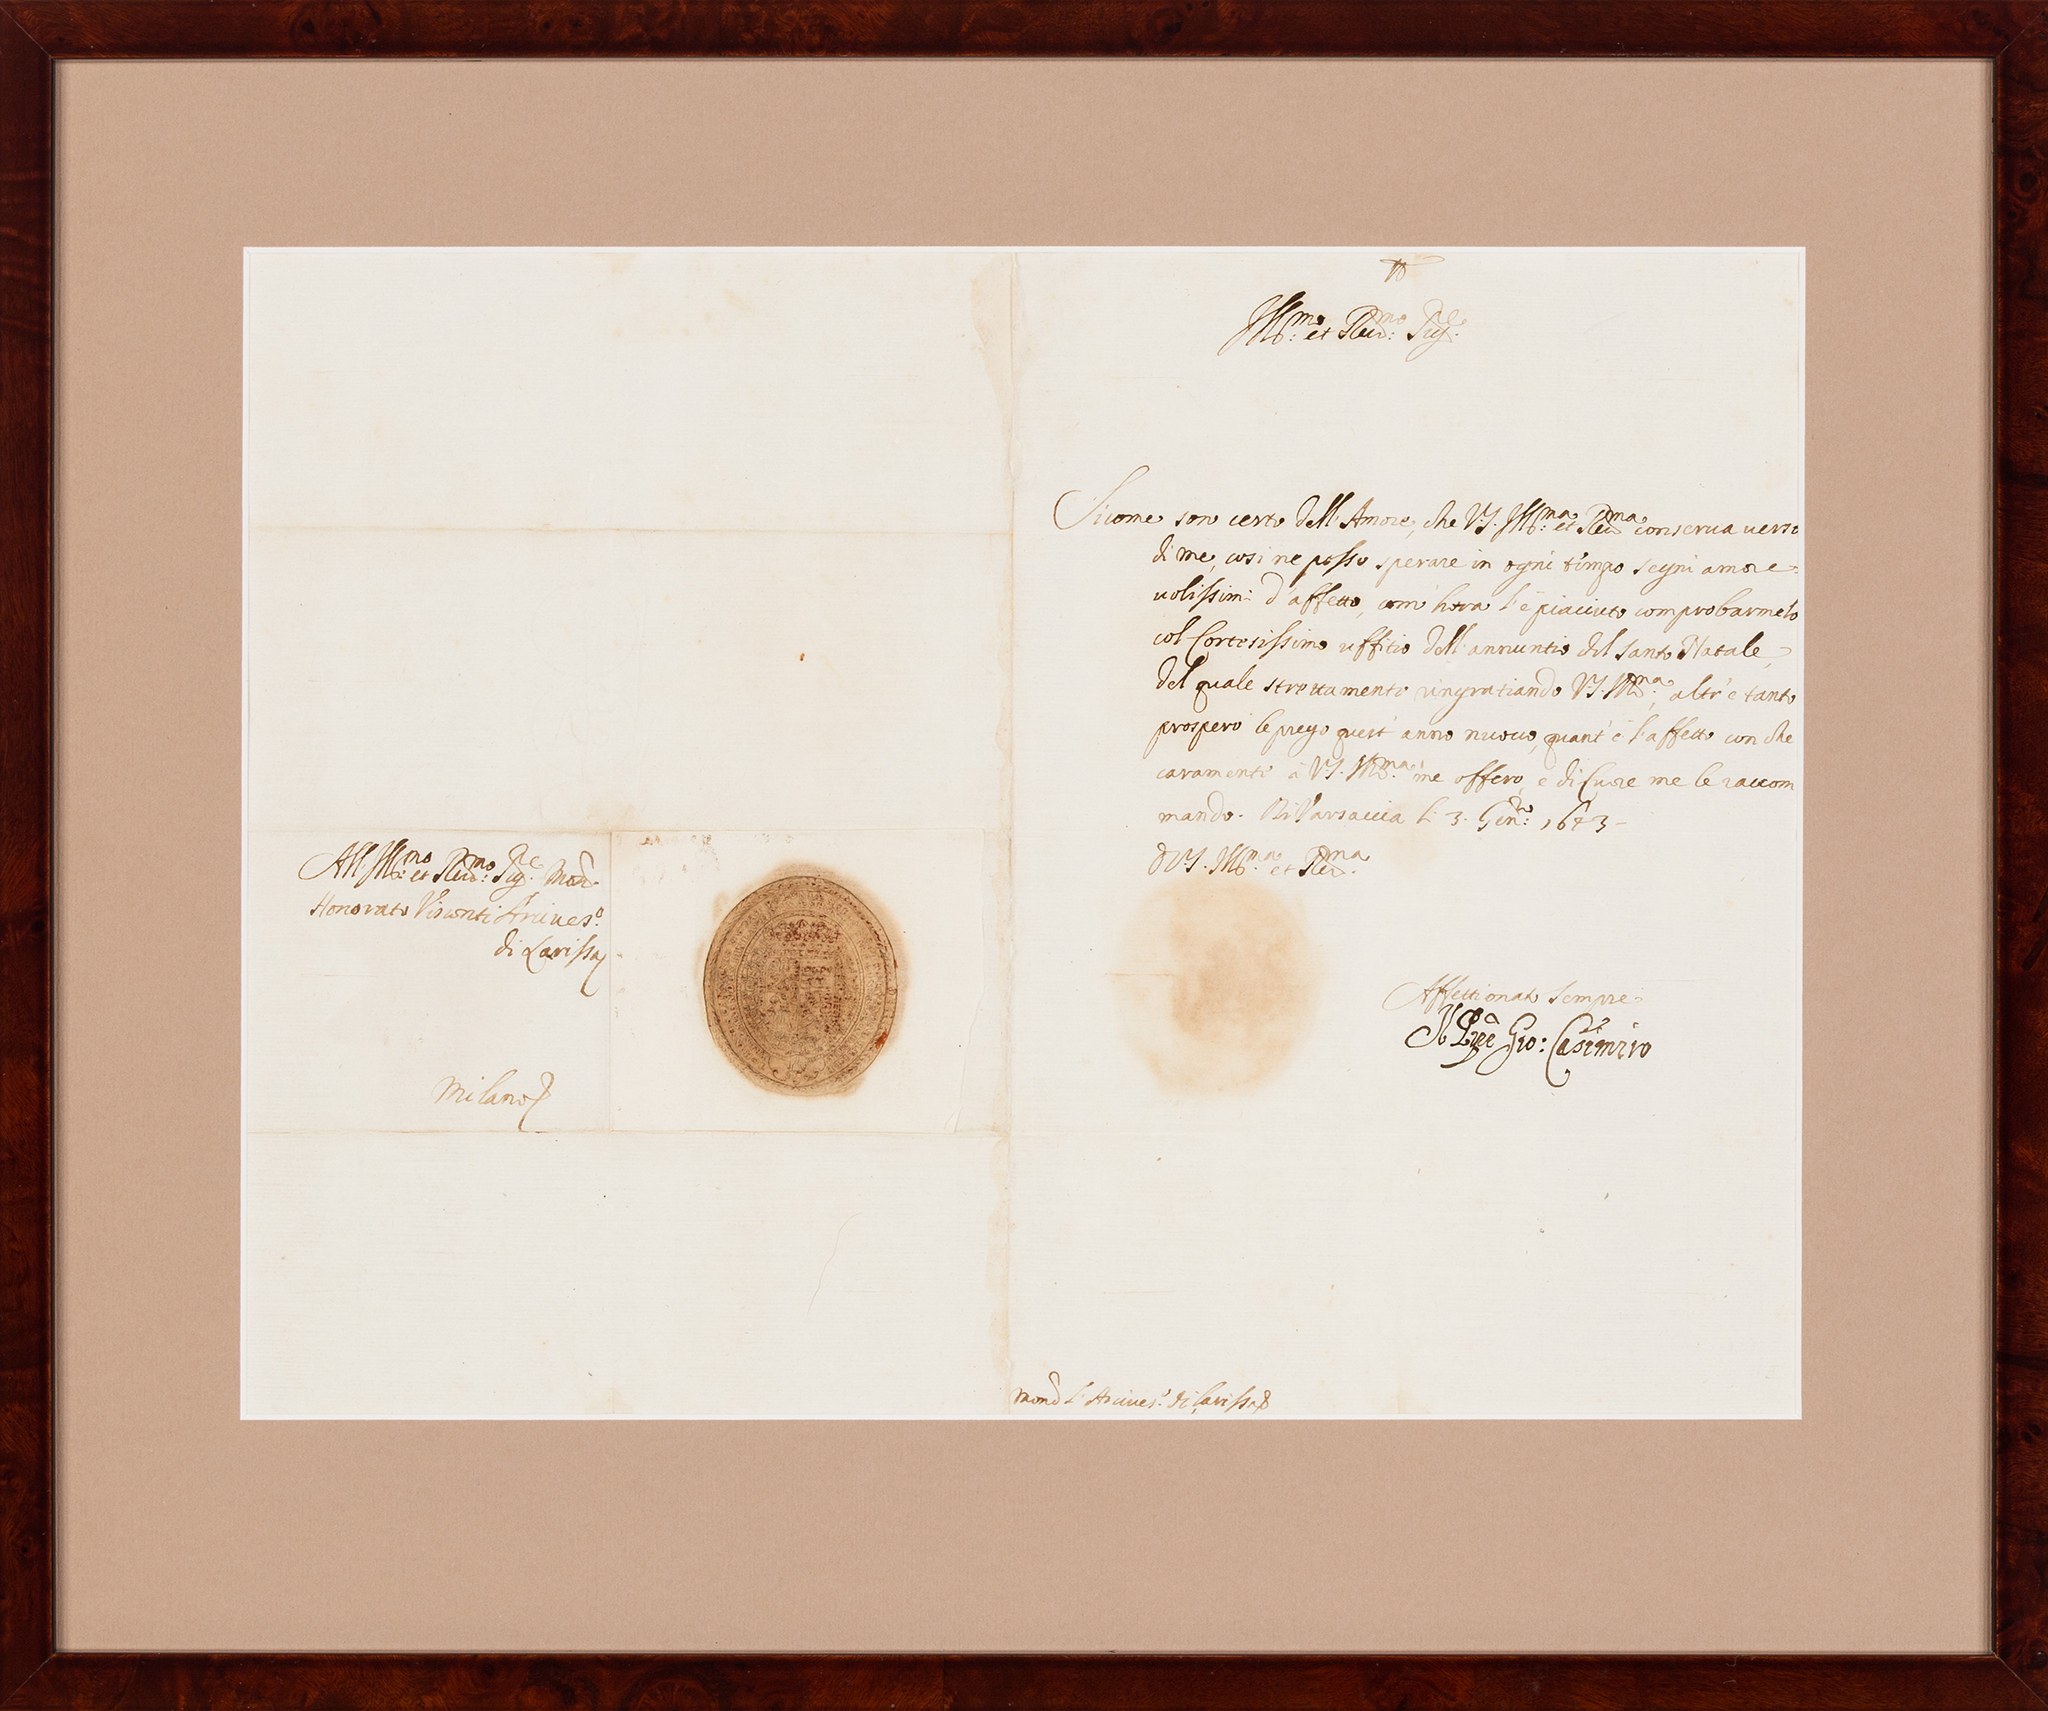 All' Ill.mo et Reu.mo Sig.re Mons.r
Honorato Visconti Arciues.o
di Larissa
Milano
Ill.mo et Reu.mo Sig.re
Sicome son certo dell' Amore, che V.S. Ill.ma et Reu.ma conserua verso
di me, cosi ne posso sperare in ogni tempo segni amore=
uolissimi d'affetto, com' hora l'è piaciuto comprobarmelo
col Cortesissimo uffitio dell' annuntio del Santo Natale,
del quale strettamente ringratiando V.S. Ill.ma, altr' e tanto
prospero le prego quest' anno nuouo, quant' è l'affetto con che
caramente à V.S. Ill.ma me offero, e di Cuore me le raccom
mando. Di Varsauia li 3. Gen.ro 1643
Di V.S. Ill.ma et Reu.ma
Affettionato sempre
Il Pñpe Gio: Casimiro
Mons.r l'Arciues.o di Larissa